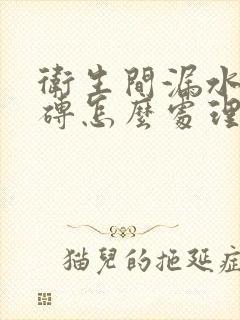 衛生間漏水
磚怎麼處理
猫兒的拖延症